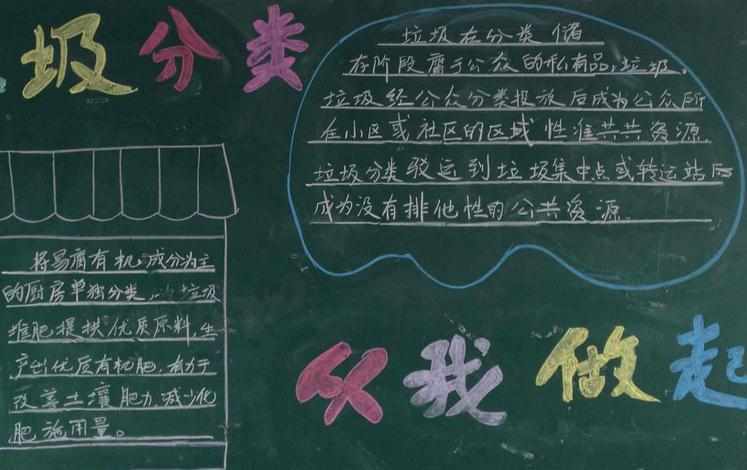 圾分类
垃圾在分类储
存阶段属于公众的私有品,垃圾
垃圾经公众分类投放后成为公众所
在小区或社区的区域性准共共资源
垃圾分类驳运到垃圾集中点或转运站后
成为没有排他性的公共资源
将易腐有机成分为主
的厨房单独分类,垃圾
堆肥提供优质原料,生
产出优质有机肥,有力于
改善土壤肥力,减少化
肥施用量。
从我做起